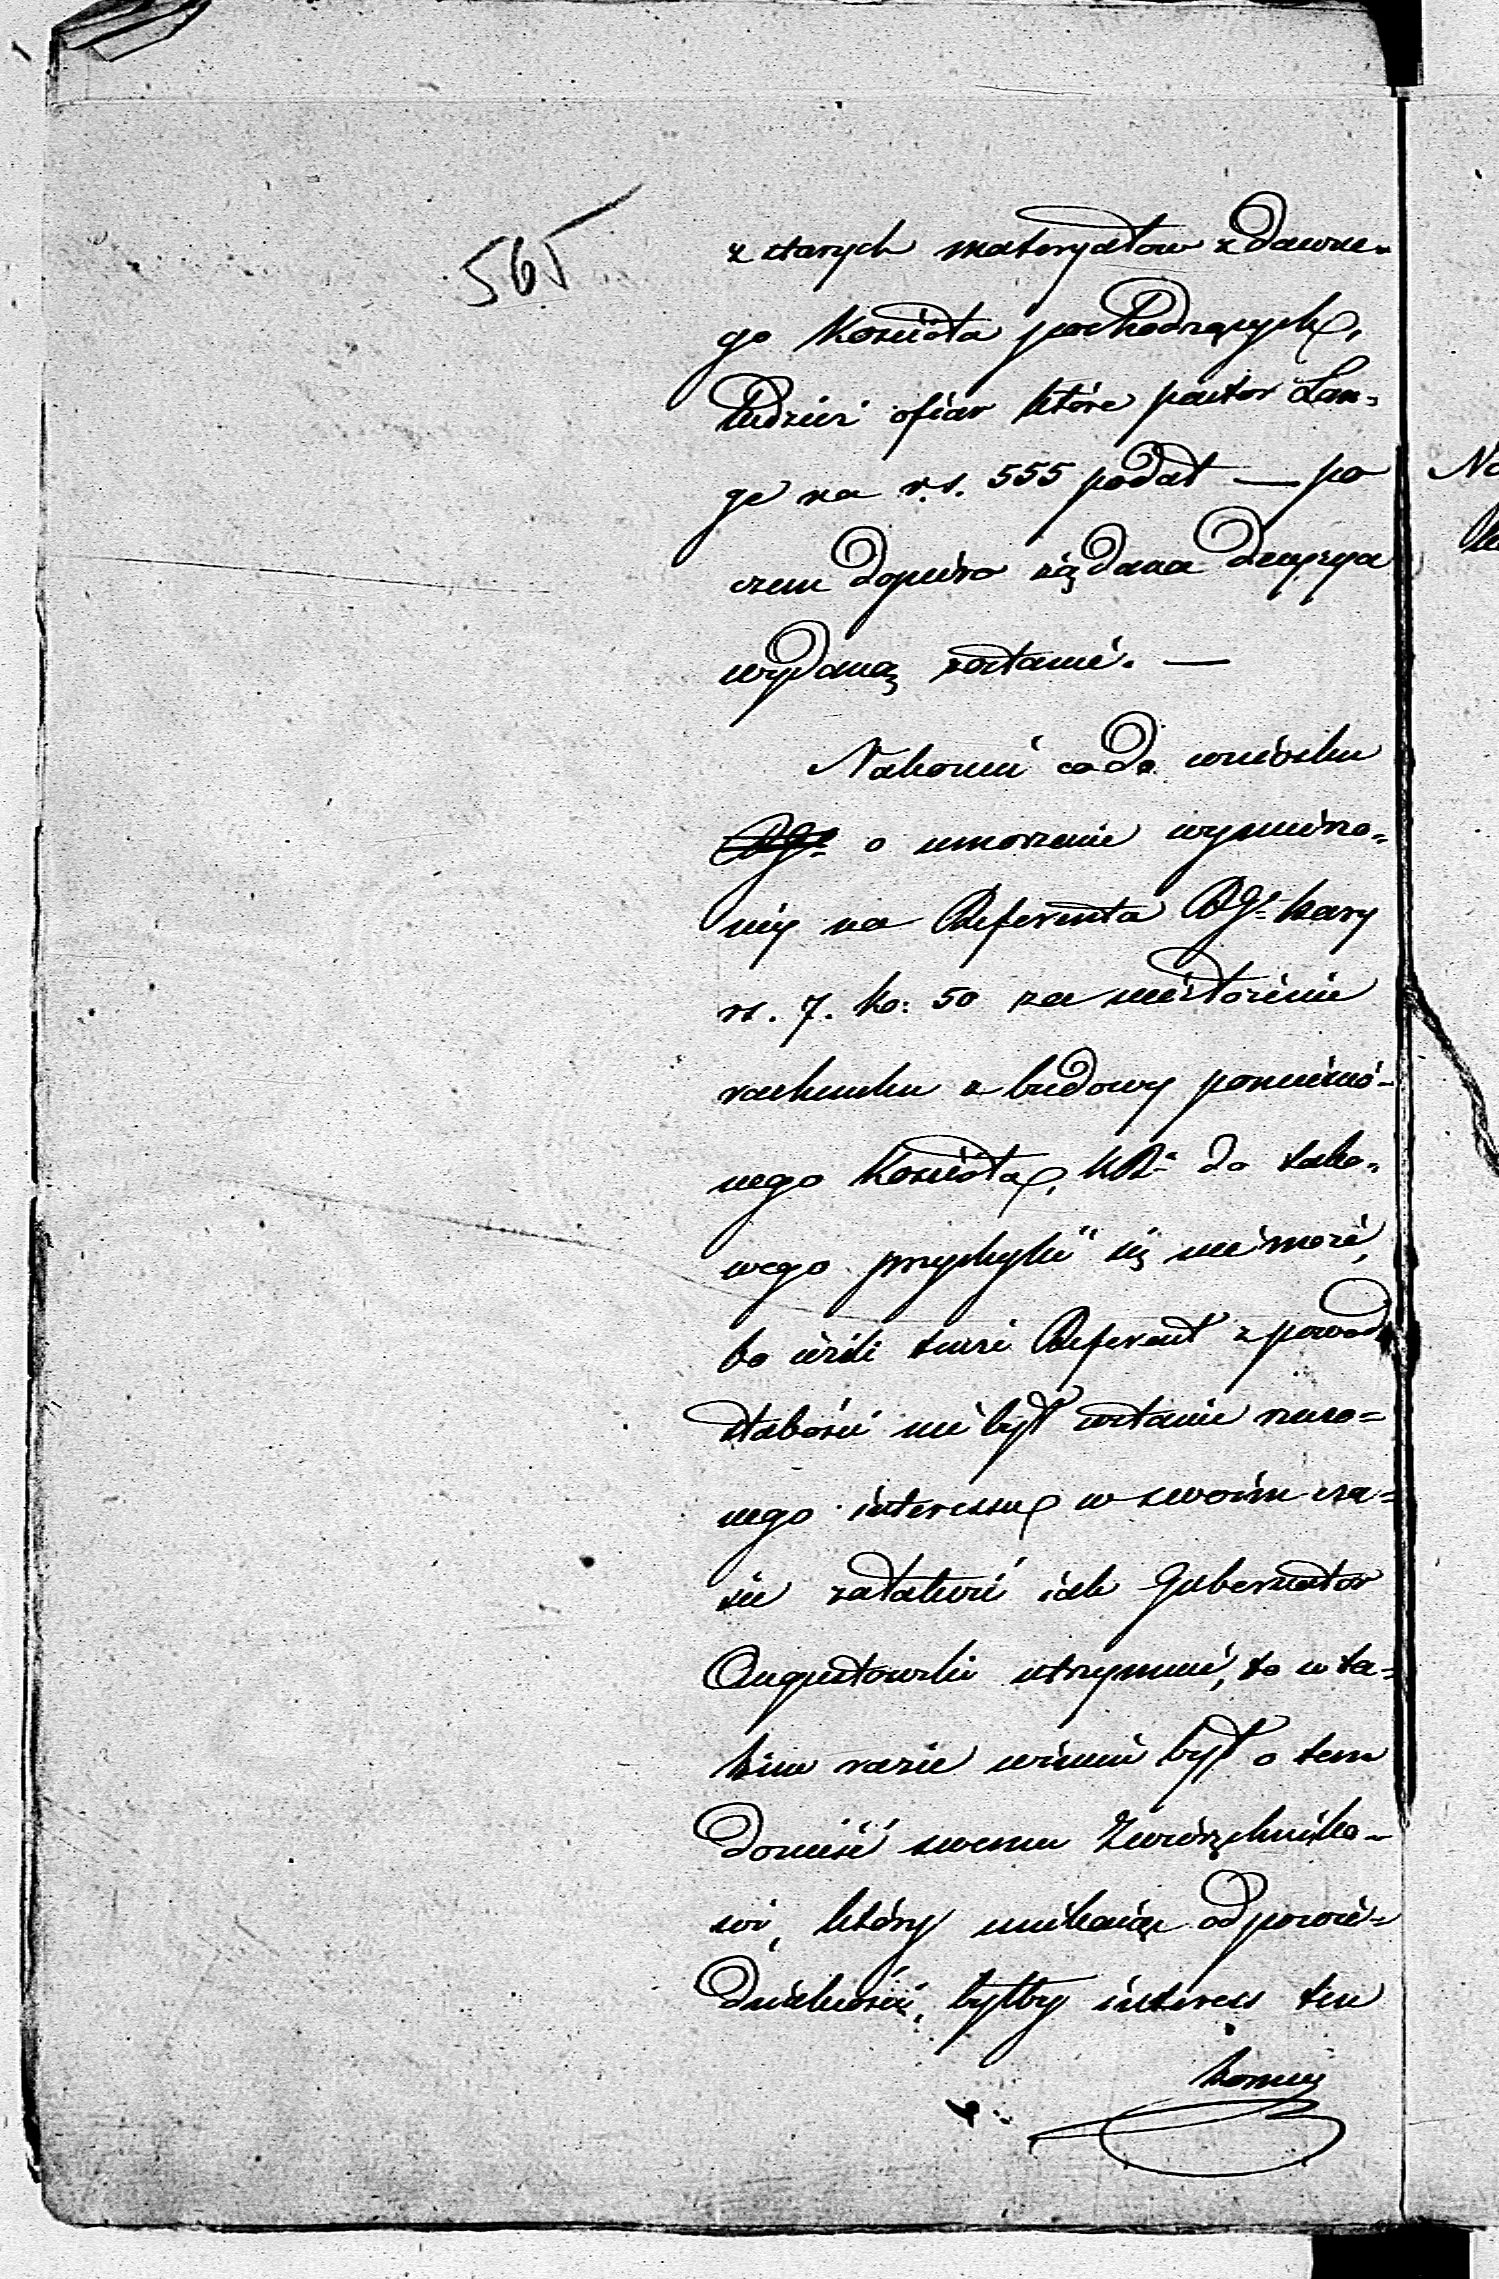 565
z starych materyałow z dawne-
go kościoła pochodzących,
tudzież ofiar które pastor Lan-
ge na r.s. 555 podał — po
czem dopiéro żądana decyzya
wydaną zostanie. —
Nakoniec co do wniosku
RGo o umorzenie wymierzo-
néj na Referenta RGo kary
rs. 7. ko: 50 za niezłożenie
rachunku z budowy pomienio-
nego kościoła, KR do tako-
wego przychylić się nie może,
bo ieżeli tenże Referent z powodu
słabości nie był wstanie rzeczo-
nego interessu w swoim cza-
sie załatwić iak Gubernator
Augustowski utrzymuie, to w ta-
kim razie winien był o tem
donieść swemu Zwierzchniko-
wi, który unikaiąc odpowie-
dzialności, byłby interess ten